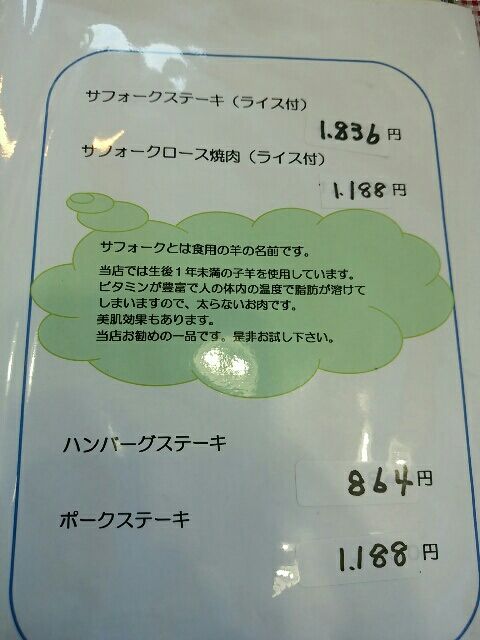 サフォークステーキ（ライス付）
1.836円
サフォークロース焼肉（ライス付）
1.188円
サフォークとは食用の羊の名前です。
当店では生後１年未満の子羊を使用しています。
ビタミンが豊富で人の体内の温度で脂肪が溶けて
しまいますので、太らないお肉です。
美肌効果もあります。
当店お勧めの一品です。是非お試し下さい。
ハンバーグステーキ
864円
ポークステーキ
1.188円